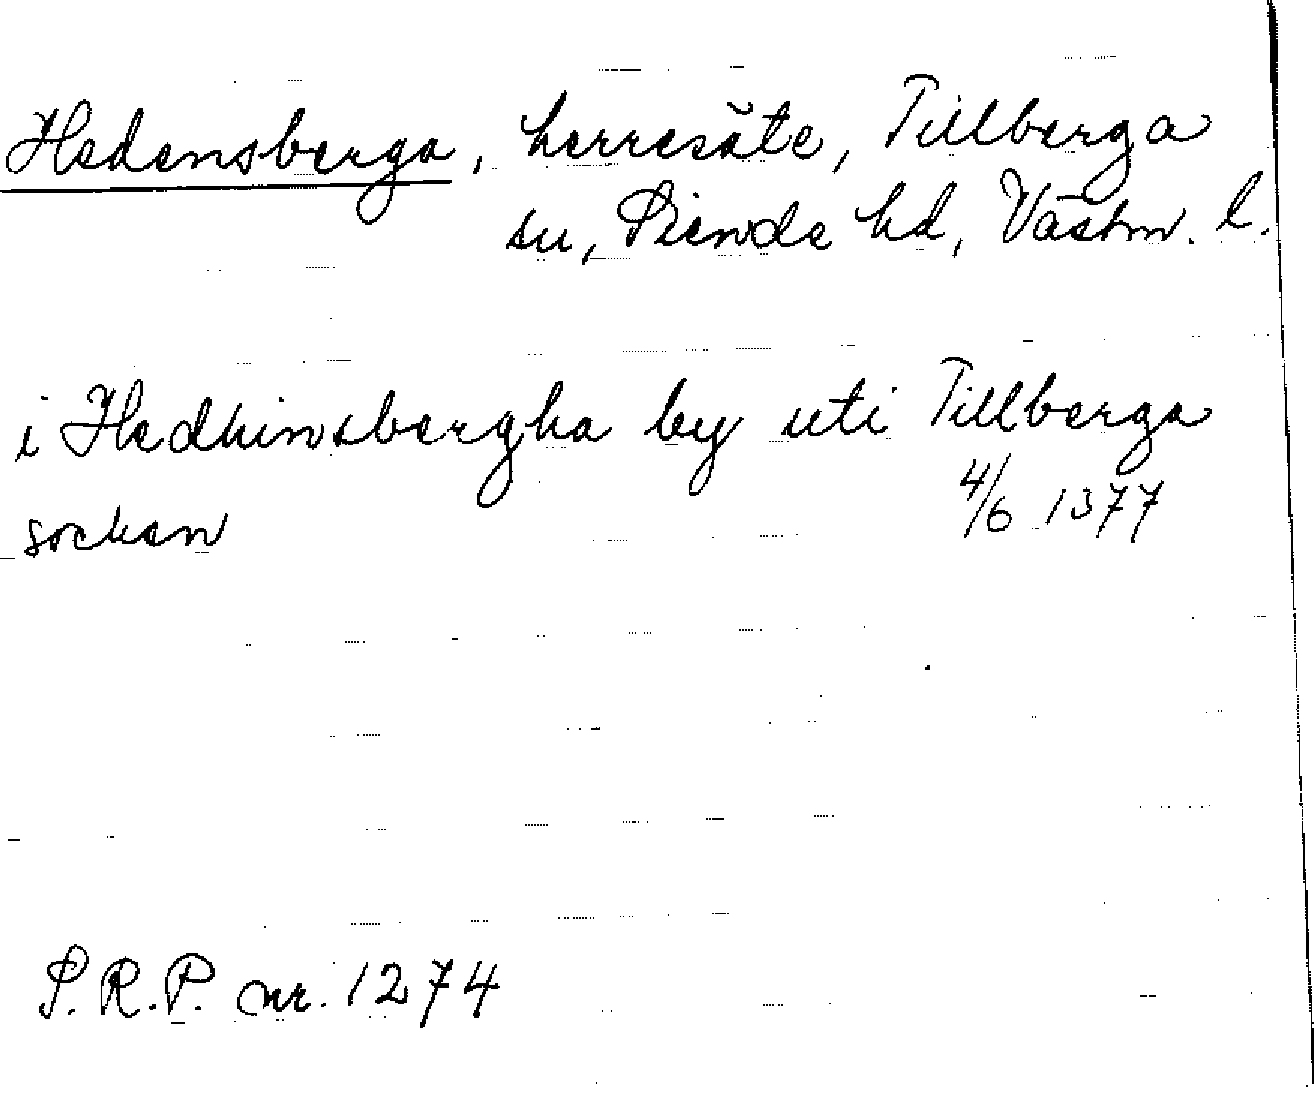 Hedensberga, herresäte, Tillberga
sn, Siende hd, Västm. l.
i Hedhinsbergha by uti Tillberga
socken 4/6 1377
S.R.P. nr. 1274